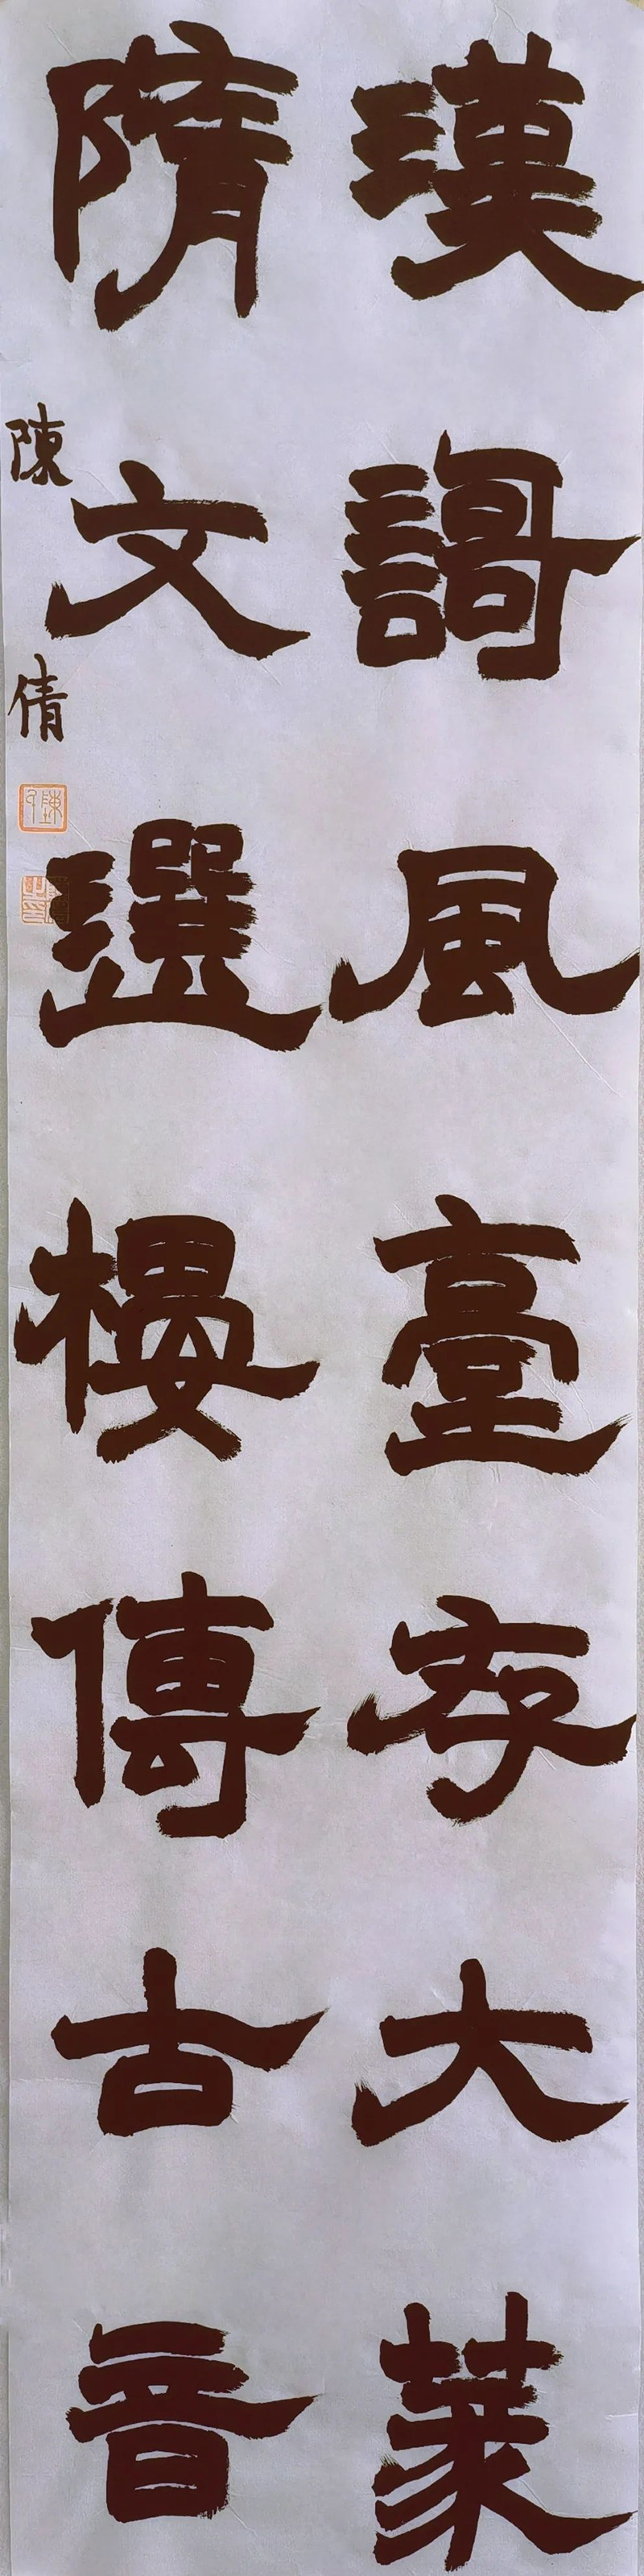 漢謌風臺存大篆
隋文選樓傳古音
陳倩